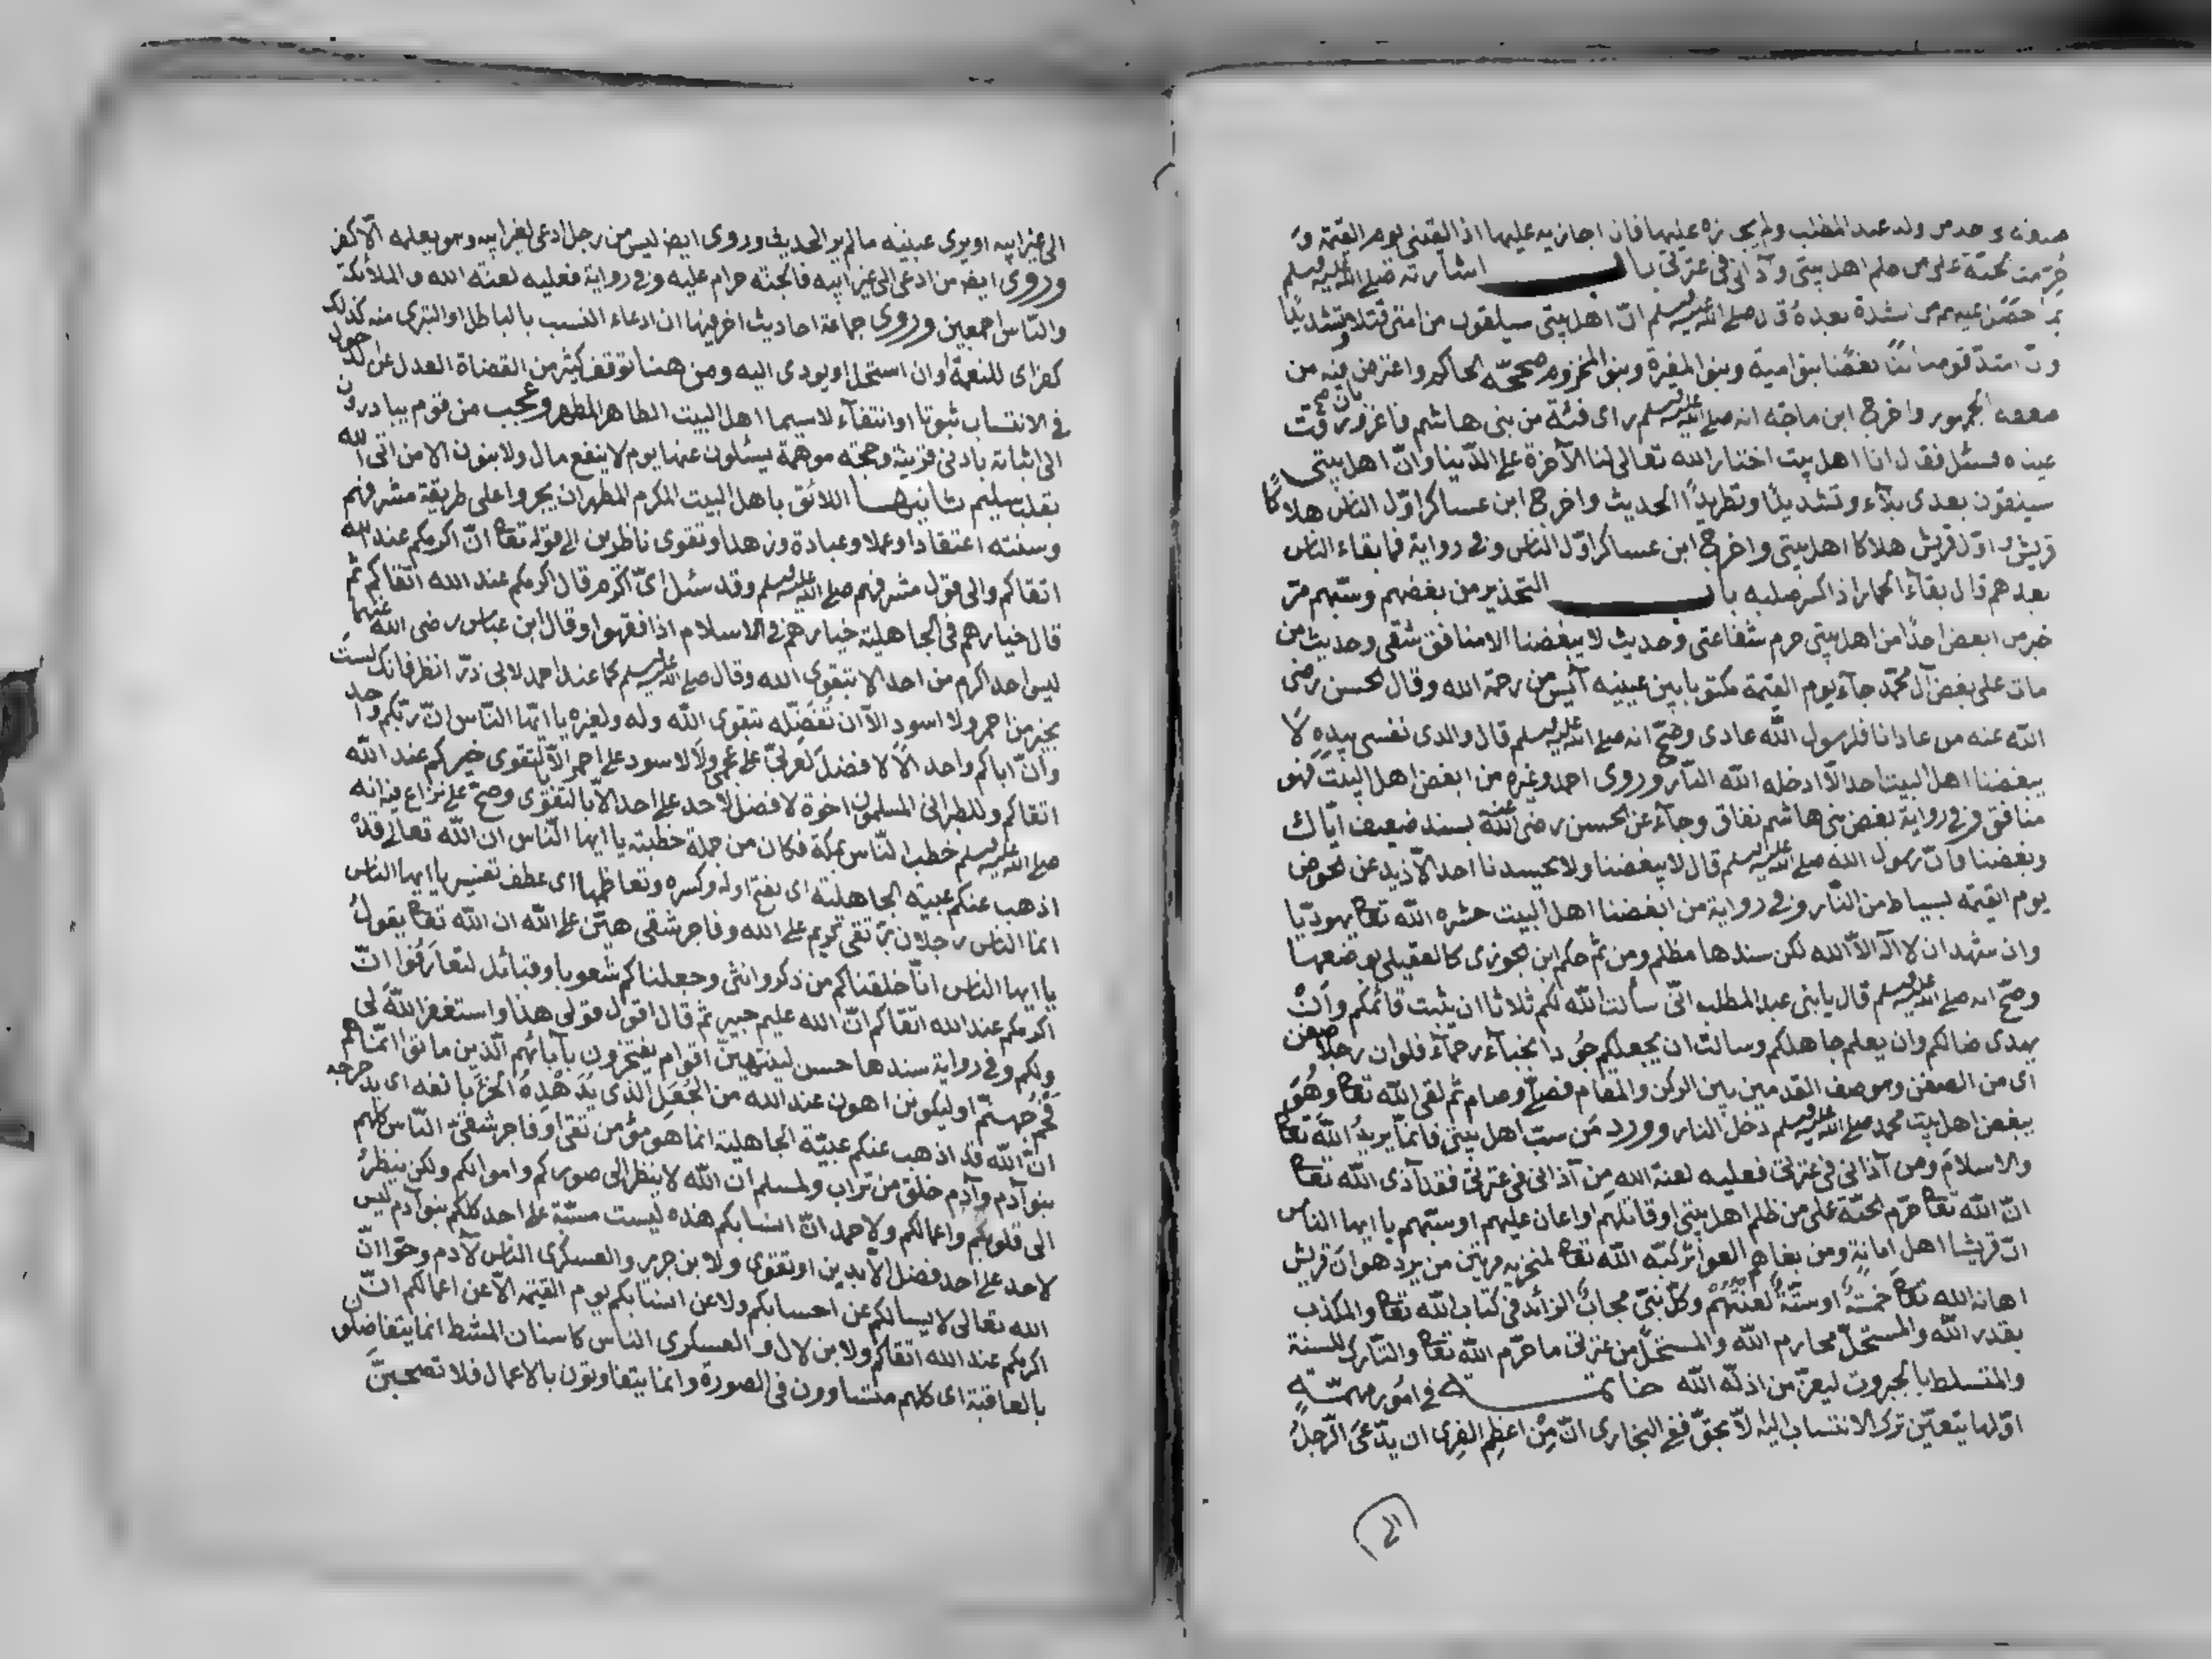 صنوف واحد من ولد عبد المطلب ولم يجزه عليها فانا اجازيه عليها اذا لقيني يوم القيمة و
حرمت الجنة على من ظلم اهل بيتي وآذاني في عترتي باب اشارته صلى الله عليه وسلم
بما حصل عليهم من الشدة بعده قال صلى الله عليه وسلم ان اهل بيتي سيلقون من امتي قتلا وتشديدا
وان اشد قومنا لنا بغضا بنو امية وبنو المغيرة وبنو المخزوم صححه الحاكم واعترض فيه من
ضعفه الجمهور واخرج ابن ماجة انه صلى الله عليه وسلم راى فئة من بني هاشم فاغرورقت
عيناه فسئل فقال انا اهل بيت اختار الله تعالى لنا الآخرة على الدنيا وان اهل بيتي
سيلقون بعدي بلآء وتشديدا وتطريدا الحديث واخرج ابن عساكر اول الناس هلاكا
قريش واول قريش هلاكا اهل بيتي واخرج ابن عساكر اول الناس وفي رواية فما بقاء الناس
بعدهم قال بقآء الحمار اذا كسر صلبه باب التحذير من بغضهم وسبهم مر
خبر من ابغض احدا من اهل بيتي حرم شفاعتي وحديث لا يبغضنا الا منافق شقي وحديث من
مات على بغض آل محمد جآء يوم القيمة مكتوبا بين عينيه آيس من رحمة الله وقال الحسن رضي
الله عنه من عادانا فلرسول الله عادى وصح انه صلى الله عليه وسلم قال والذي نفسي بيده لا
يبغضنا اهل البيت احد الا ادخله الله النار وروى احمد وغيره من ابغض اهل البيت فهو
منافق وفي رواية بغض بني هاشم نفاق وجآء عن الحسن رضي الله عنه بسند ضعيف اياك
وبغضنا فان رسول الله صلى الله عليه وسلم قال لا يبغضنا ولا يحسدنا احد الا ذيد عن الحوض
يوم القيمة بسياط من النار وفي رواية من ابغضنا اهل البيت حشره الله تعالى يهوديا
وان شهد ان لا اله الا الله لكن سندها مظلم ومن ثم حكم ابن الجوزي كالعقيلي بوضعها
وصح انه صلى الله عليه وسلم قال يا بني عبد المطلب اني سألت الله لكم ثلاثا ان يثبت قائمكم وان
يهدي ضالكم وان يعلم جاهلكم وسالت ان يجعلكم جودا نجباء رحماء فلو ان رجلا صفن
اى من الصفن وهو صف القدمين بين الركن والمقام فصلى وصام ثم لقى الله تعالى وهو
يبغض اهل بيت محمد صلى الله عليه وسلم دخل النار وورد من سب اهل بيتي فانما يريد الله تعالى
والاسلام ومن آذاني في عترتي فعليه لعنة الله من آذاني في عترتي فقد آذى الله تعالى
ان الله تعالى حرم الجنة على من ظلم اهل بيتي او قاتلهم او اعان عليهم او سبهم يا ايها الناس
ان قريشا اهل امانة ومن بغاهم العواثر كبه الله تعالى لمنخريه مرتين من يرد هوان قريش
اهانه الله تعالى خمسة او ستة لعنتهم وكل نبي مجاب الزائد في كتاب الله تعالى والمكذب
بقدر الله والمستحل محارم الله والمستحل من عترتي ما حرم الله تعالى والتارك للسنة
والمتسلط بالجبروت ليعز من اذله الله خاتمة في امور مهمة
اولها يتعين ترك الانتساب اليه الا بحق ففي البخاري ان من اعظم الفرى ان يدعى الرجل
الى غير ابيه او يرى عينيه مالم ير الحديث وروى ايضا ليس من رجل ادعى لغير ابيه وهو يعلمه الا كفر
وروى ايضا من ادعى الى غير ابيه فالجنة حرام عليه وفي رواية فعليه لعنة الله والملائكة
والناس اجمعين وروى جماعة احاديث اخر فيها ان ادعاء النسب بالباطل او التبري منه كذلك
كفر اى للنعمة او ان استحل او يودى اليه ومن هنا توقف كثير من القضاة العدل عن الدخول
في الانتساب ثبوتا او انتفآء لاسيما اهل البيت الطاهر المطهر وعجب من قوم يبادرون
الى اثباته بادنى قرينة وحجة موهمة يسئلون عنها يوم لا ينفع مال ولا بنون الا من اتى الله
بقلب سليم ثانيها اللائق باهل البيت المكرم المطهر ان يجروا على طريقة مشرفهم
وسنته اعتقادا وعملا وعبادة وزهدا وتقوى ناظرين الى قوله تعالى ان اكرمكم عند الله
اتقاكم والى قول مشرفهم صلى الله عليه وسلم وقد سئل اى الناس اكرم قال اكرمكم عند الله اتقاكم ثم
قال خيارهم في الجاهلية خيارهم في الاسلام اذا فقهوا وقال ابن عباس رضي الله عنهما
ليس احد اكرم من احد الا بتقوى الله وقال صلى الله عليه وسلم كما عند احمد لابي ذر انظر فانك لست
بخير من احمر ولا اسود الا ان تفضله بتقوى الله وله ولغيره يا ايها الناس ان ربكم واحد
وان اباكم واحد الا لا فضل لعربي على عجمي ولا لاسود على احمر الا بالتقوى خيركم عند الله
اتقاكم وللطبراني المسلمون اخوة لا فضل لاحد على احد الا بالتقوى وصح على نزاع فيه انه
صلى الله عليه وسلم خطب الناس بمكة فكان من جملة خطبته يا ايها الناس ان الله تعالى قد
اذهب عنكم عبية الجاهلية اى بفتح اوله وكسره وتعاظمها اى عطف تفسير يا ايها الناس
انما الناس رجلان بر تقي كريم على الله وفاجر شقي هين على الله ان الله تعالى يقول
يا ايها الناس انا خلقناكم من ذكر وانثى وجعلناكم شعوبا وقبائل لتعارفوا ان
اكرمكم عند الله اتقاكم ان الله عليم خبير ثم قال اقول قولي هذا واستغفر الله لي
ولكم وفي رواية سندها حسن لينتهين اقوام يفتخرون بآبائهم الذين ماتوا انما هم
فحم جهنم او ليكونن اهون عند الله من الجعل الذى يدهده الخرء بانفه اى يدحرجه
ان الله قد اذهب عنكم عبية الجاهلية انما هو مؤمن تقي او فاجر شقي الناس كلهم
بنو آدم وآدم خلق من تراب ولمسلم ان الله لا ينظر الى صوركم واموالكم ولكن ينظر
الى قلوبكم واعمالكم ولاحمد ان انسابكم هذه ليست مسبة على احد كلكم بنو آدم ليس
لاحد على احد فضل الا بدين او تقوى ولابن جرير والعسكري الناس لآدم وحوا ان
الله تعالى لا يسالكم عن احسابكم ولا عن انسابكم يوم القيمة الا عن اعمالكم ان
اكرمكم عند الله اتقاكم ولابن لال والعسكري الناس كاسنان المشط انما يتفاضلون
بالعافية اى كلهم متساوون في الصورة وانما يتفاوتون بالاعمال فلا تصحبن